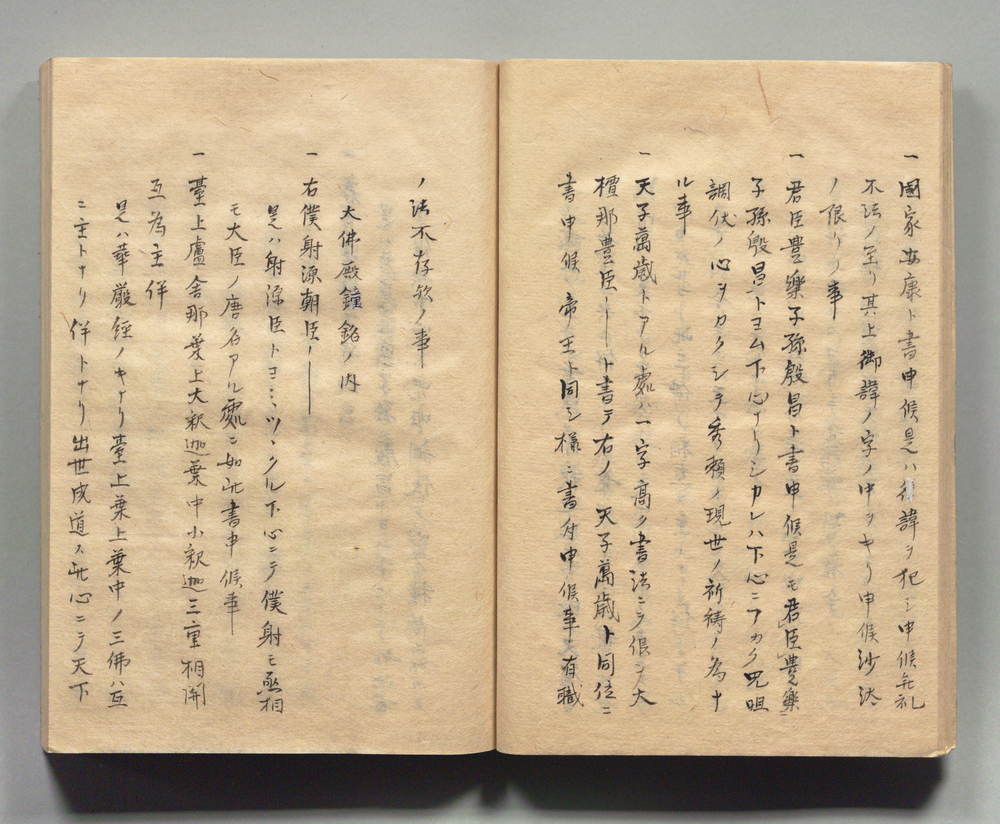 一國家安康ト書申候是ハ御諱ヲ犯シ申候無礼
不法ノ至リ其上御諱ノ字ノ中ヲキリ申候沙汰
ノ限リノ事
一君臣豊樂子孫殷昌ト書申候是モ君臣豊樂
子孫殷昌トヨム下心ナリシカレハ下心ニフカク咒咀
調伏ノ心ヲカクシテ秀頼ノ現世ノ祈祷ノ為ナ
ル事
一天子萬歳トアル處ハ一字高ク書法ニテ候ニ大
檀那豊臣ーート書テ右ノ天子萬歳ト同位ニ
書申候帝王ト同シ様ニ書付申候事有職
ノ法不存欤ノ事
大佛殿鐘銘ノ内
一右僕射源朝臣ノー
是ハ射源臣トヨミツヽクル下心ニテ僕射モ亟相
モ大臣ノ唐名アル處ニ如此書申候事
一臺上盧舎那葉上大釈迦葉中小釈迦三重相関
互為主伴
是ハ華厳経ノキナリ臺上葉上葉中ノ三佛ハ互
ニ主トナリ伴トナリ出世成道ス此心ニテ天下